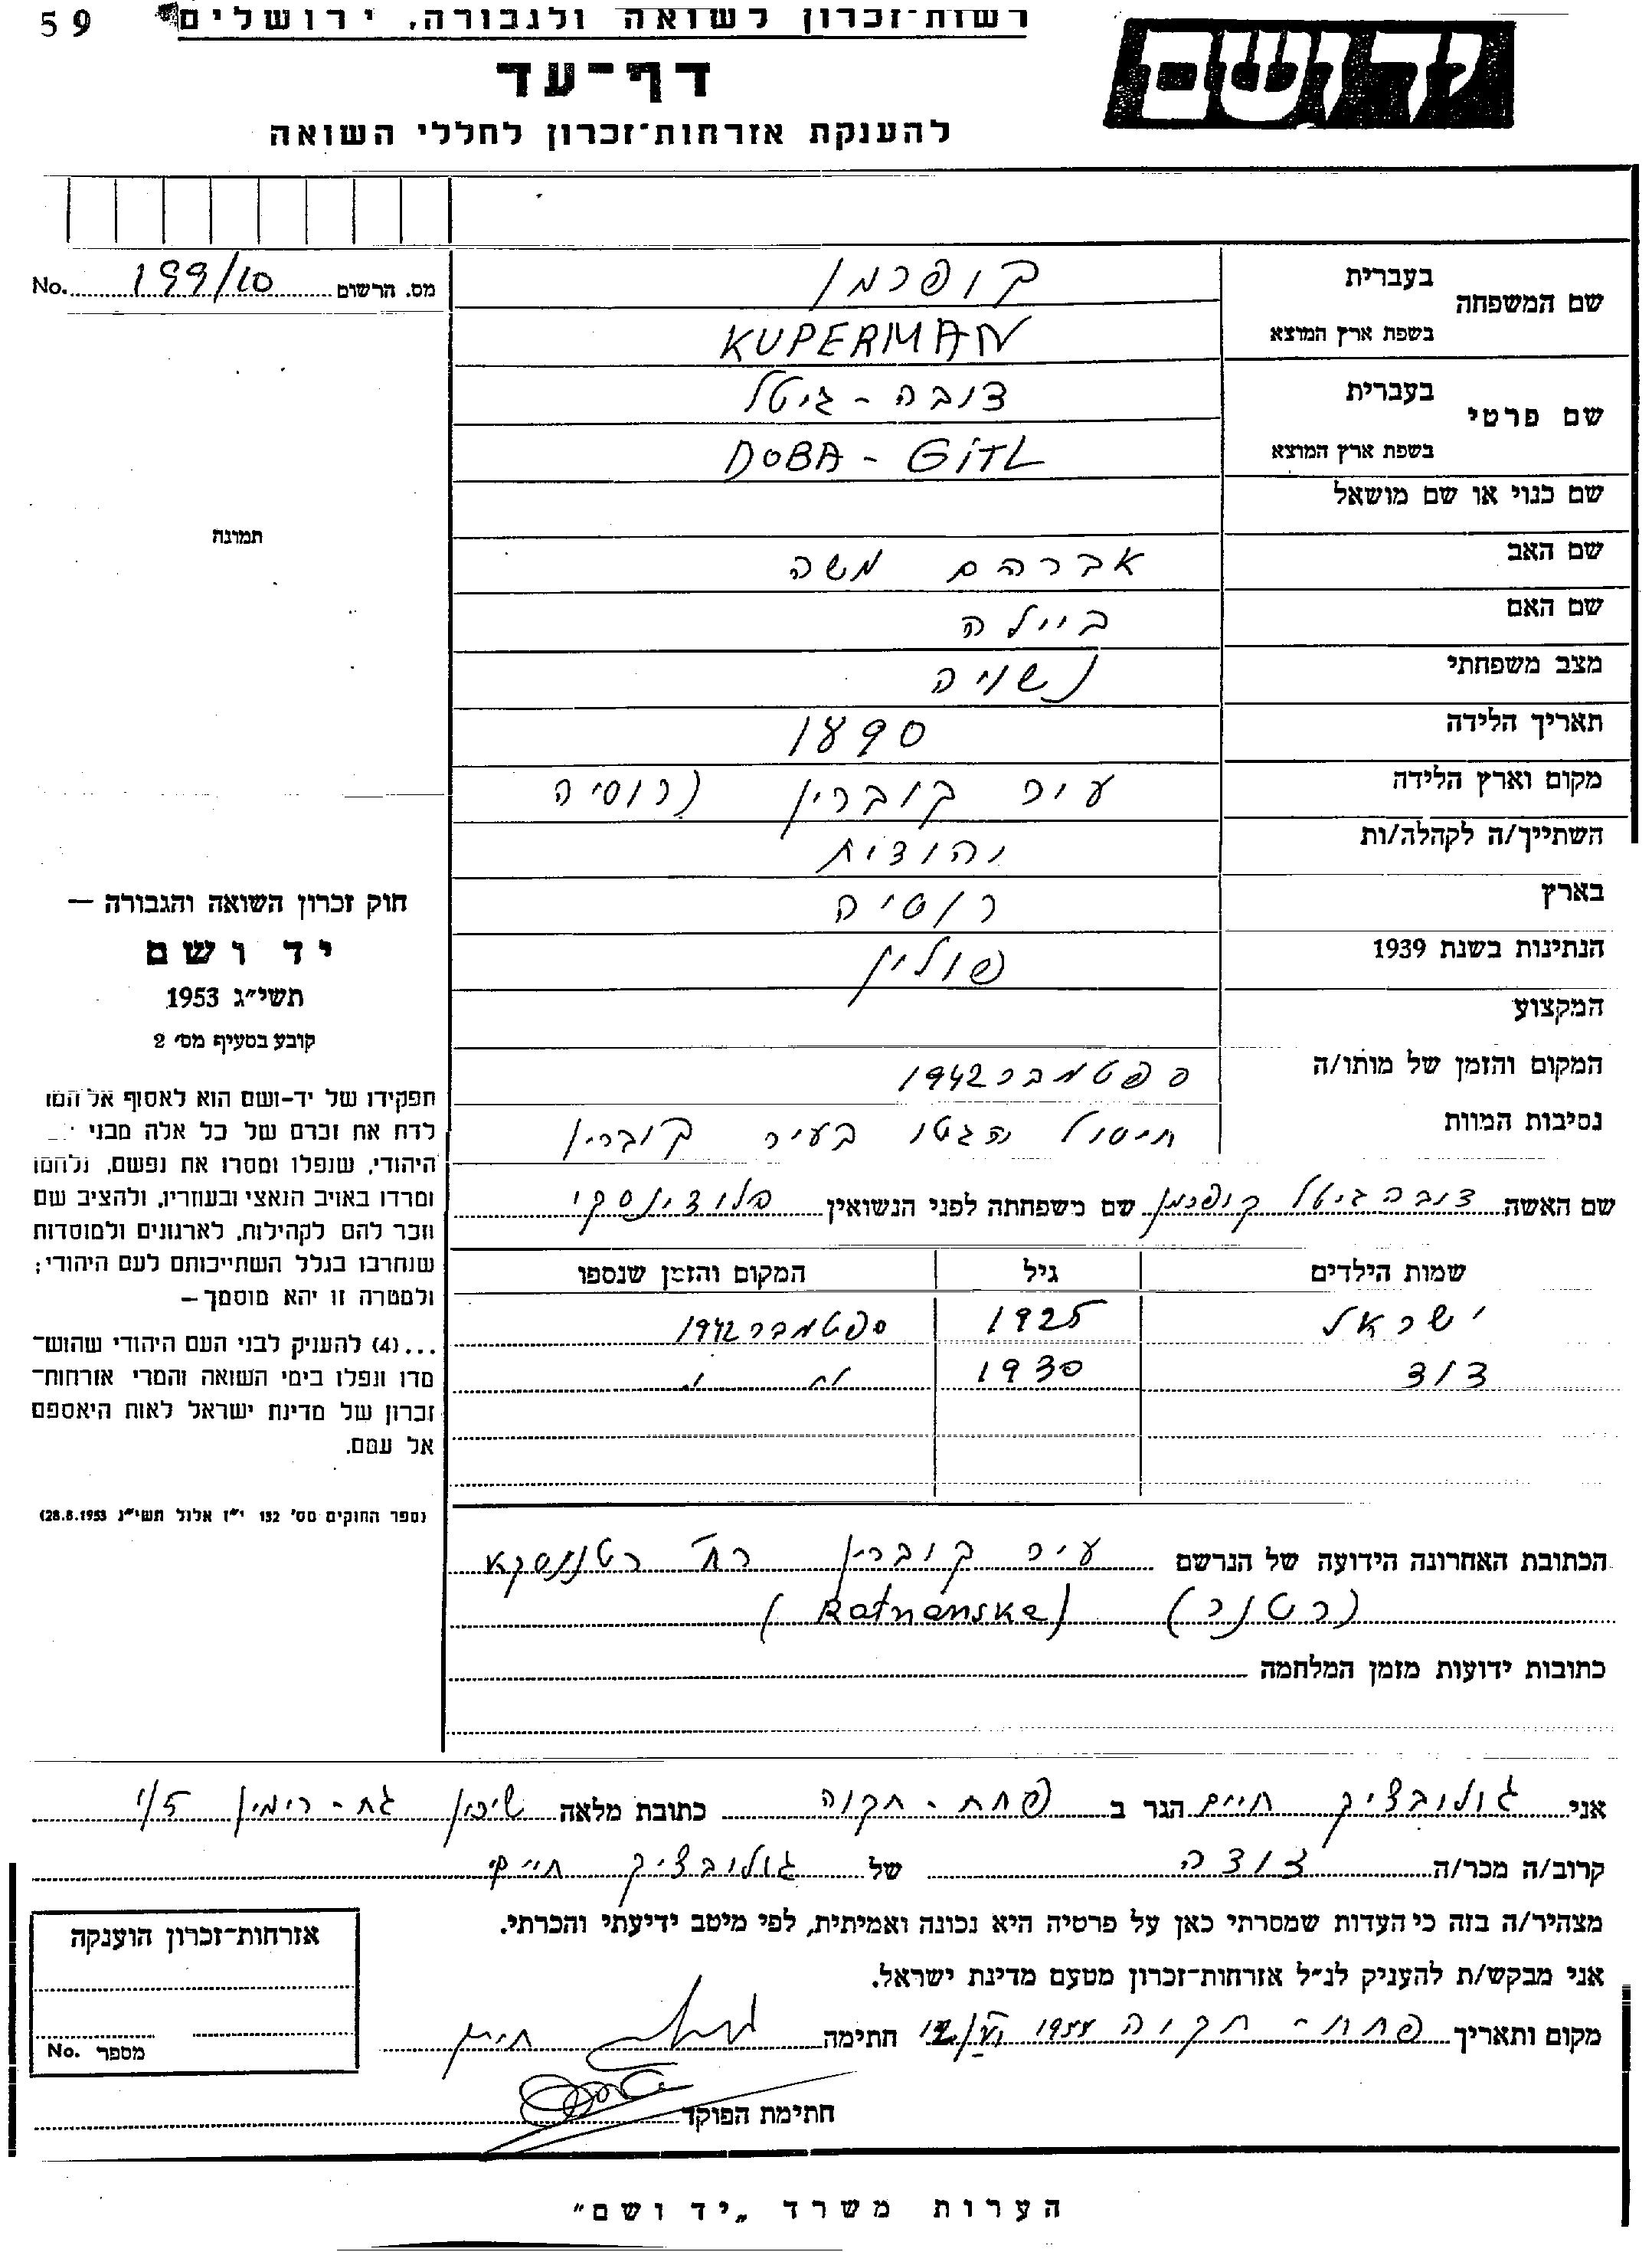 59
רשות־זכרון לשואה ולגבורה, ירושלים
יד ושם
דף־עד
להענקת אזרחות־זכרון לחללי השואה
מס. הרשום 199/10 No.
שם המשפחה בעברית קופרמן
בשפת ארץ המוצא KUPERMAN
שם פרטי בעברית דובה - גיטל
בשפת ארץ המוצא DOBA - GITL
שם כנוי או שם מושאל
שם האב אברהם משה
שם האם ביילה
מצב משפחתי נשויה
תאריך הלידה 1890
מקום וארץ הלידה עיר קוברין (רוסיה
השתייך/ה לקהלה/ות יהודית
בארץ רוסיה
הנתינות בשנת 1939 פולין
המקצוע
המקום והזמן של מותו/ה ספטמבר 1942
נסיבות המוות חיסול הגטו בעיר קוברין
שם האשה דובה גיטל קופרמן שם משפחתה לפני הנשואין
שמות הילדים גיל המקום והזמן שנספו
ישראל 1925 ספטמבר 1942
דוד 1930
תמונה
חוק זכרון השואה והגבורה —
יד ושם
תשי״ג 1953
קובע בסעיף מס׳ 2
תפקידו של יד-ושם הוא לאסוף אל המו
לדת את זכרם של כל אלה מבני
היהודי, שנפלו ומסרו את נפשם, נלחמו
ומרדו באויב הנאצי ובעוזריו, ולהציב שם
וזכר להם לקהילות, לארגונים ולמוסדות
שנחרבו בגלל השתייכותם לעם היהודי;
ולמטרה זו יהא מוסמך—
...(4) להעניק לבני העם היהודי שהוש־
מדו ונפלו בימי השואה והמרי אזרחות־
זכרון של מדינת ישראל לאות היאספם
אל עמם.
(ספר החוקים מס׳ 132 י״ז אלול תשי״ג 28.8.1953)
הכתובת האחרונה הידועה של הנרשם עיר קוברין רח׳ רטננסקא
(רטנר) (Ratnanska)
כתובות ידועות מזמן המלחמה
אני גולובציק חיים הגר ב פתח - תקוה כתובת מלאה שיכון גת - רימון 5/1
קרוב/ה מכר/ה דודה של גולובציק חיים
מצהיר/ה בזה כי העדות שמסרתי כאן על פרטיה היא נכונה ואמיתית, לפי מיטב ידיעתי והכרתי.
אני מבקש/ת להעניק לנ״ל אזרחות־זכרון מטעם מדינת ישראל.
מקום ותאריך פתח - תקוה חתימה
חתימת הפוקד
אזרחות־זכרון הוענקה
מספר No.
הערות משרד „יד ושם״